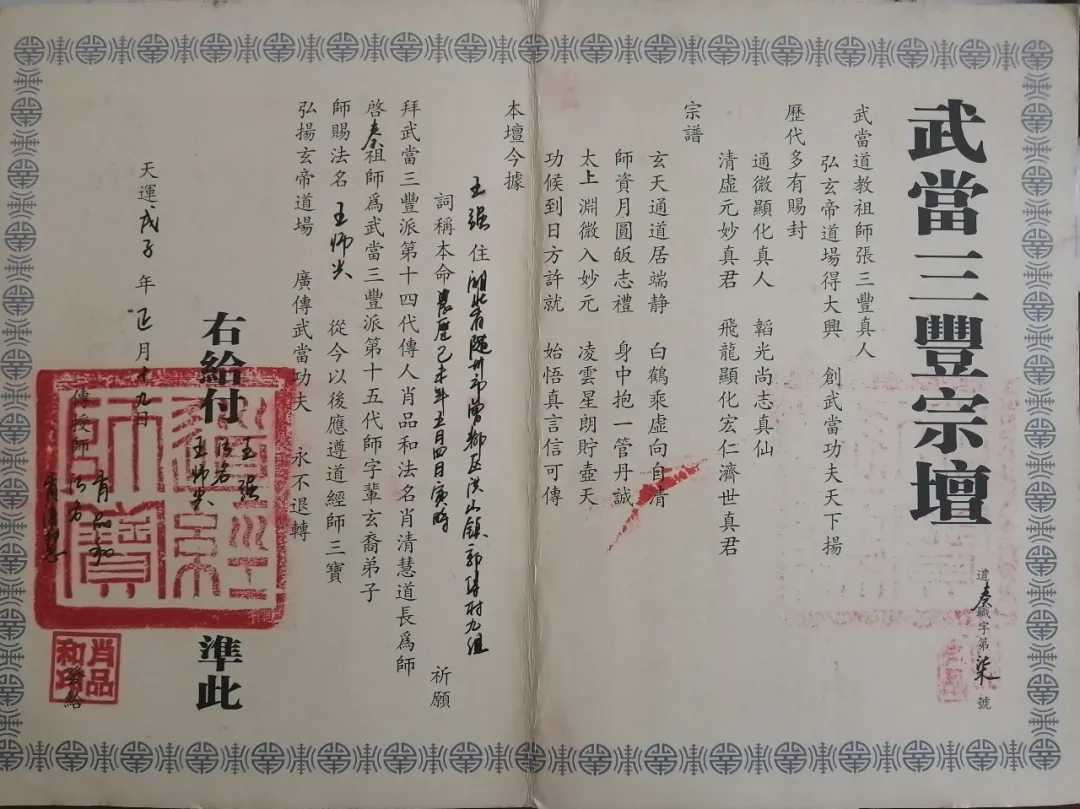 武當三豐宗壇
道職字第柒號
武當道教祖師張三豐真人
弘玄帝道場得大興 創武當功夫天下揚
歷代多有賜封
通微顯化真人 韜光尚志真仙
清虛元妙真君 飛龍顯化宏仁濟世真君
宗譜
玄天通道居端静 白鶴乘虛向自清
師資月圓皈志禮 身中抱一管丹誠
太上淵微入妙元 凌雲星朗貯壺天
功候到日方許就 始悟真言信可傳
本壇今據
王強 住 湖北省随州市曾都区洪山镇郭村九组
詞稱本命農歷己未年五月四日寅時 祈願
拜武當三豐派第十四代傳人肖品和法名肖清慧道長爲師
啓奏祖師爲武當三豐派第十五代師字輩玄裔弟子
師賜法名 王师 從今以後應遵道經師三寶
弘揚玄帝道場 廣傳武當功夫 永不退轉
右給付 王強 法名 王师 準此
天運戊子年正月十九日
傳授師 肖品和 法名 肖清慧 給
道經師寶
肖品和印